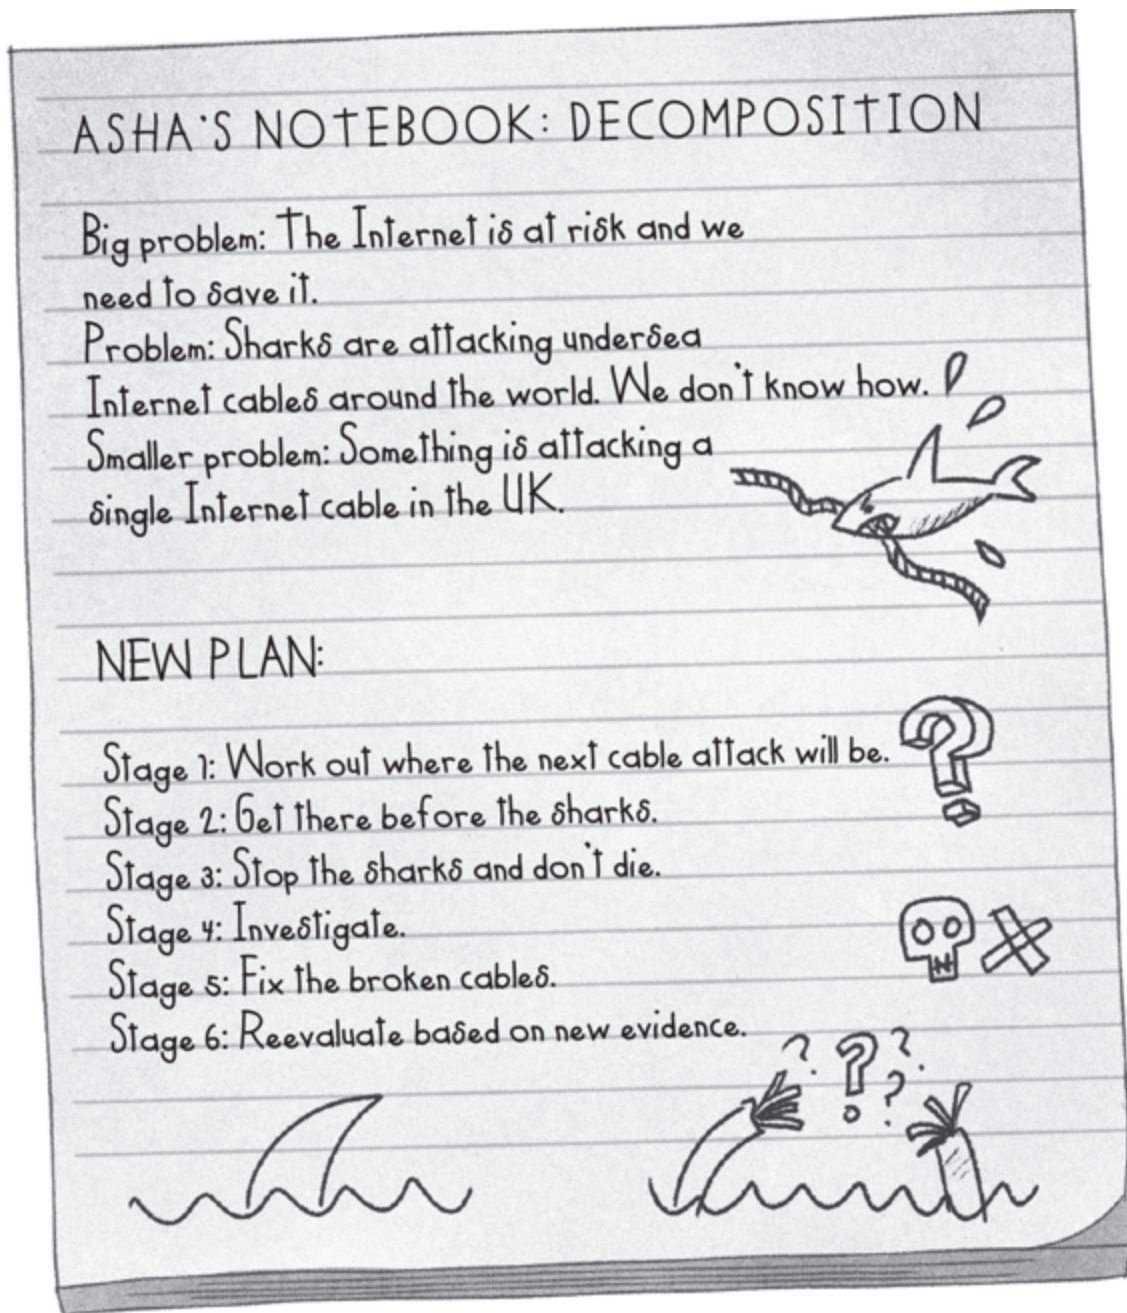 ASHA'S NOTEBOOK: DECOMPOSITION
Big problem: The Internet is at risk and we
need to save it.
Problem: Sharks are attacking undersea
Internet cables around the world. We don't know how.
Smaller problem: Something is attacking a
single Internet cable in the UK.
NEW PLAN:
Stage 1: Work out where the next cable attack will be.
?
Stage 2: Get there before the sharks.
Stage 3: Stop the sharks and don't die.
Stage 4: Investigate.
Stage 5: Fix the broken cables.
Stage 6: Reevaluate based on new evidence.
? ? ? ?